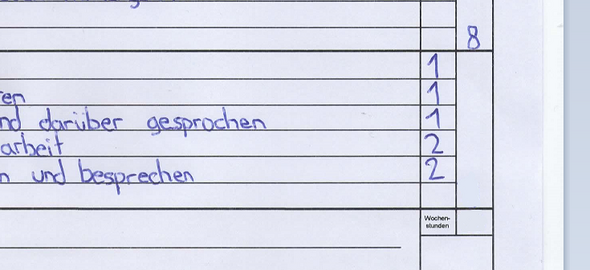 8
1
en 1
nd darüber gesprochen 1
arbeit 2
n und besprechen 2
Wochen-
stunden